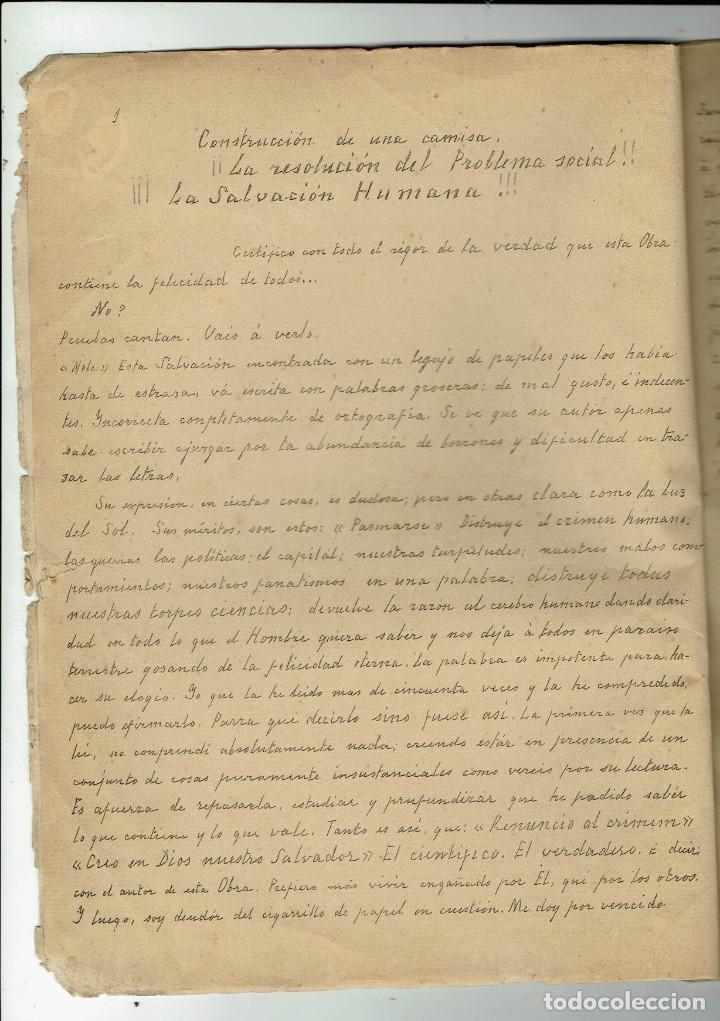 1
Construcción de una camisa.
¡¡La resolución del Problema social!!
¡¡¡ La Salvación Humana !!!
Certifico con todo el rigor de la verdad que esta Obra
contiene la felicidad de todos...
No?
Pruebas cantan. Vais á verlo.
«Nota.» Esta Salvación encontrada con un legajo de papeles que los había
hasta de estrasa, vá escrita con palabras groseras; de mal gusto, é indecen-
tes. Incorrecta conpletamente de ortografía. Se ve que su autor apenas
sabe escribir á jusgar por la abundancia de borrones y dificultad en tra-
sar las letras.
Su expresion, en ciertas cosas, es dudosa; pero en otras clara como la luz
del Sol. Sus méritos, son estos: «Pasmarse» Distruye el crimen humano;
las guerras las politicas; el capitál; nuestras turpitudes; nuestros malos com
portamientos; nuestros fanatismos en una palabra; distruye todas
nuestras torpes ciencias; devuelve la razón al cerebro humano dando clari-
dad en todo lo que el Hombre quiera saber y nos deja á todos en paraiso
terrestre gosando de la felicidad eterna. La palabra es impotente para ha-
cer su elogio. Yo que la he leido mas de cincuenta veces y la he compredido,
puedo afirmarlo. Parra qué decirlo sino fuese asi. La primera vez que la
leí, no conprendí absolutamente nada; creendo estár en presencia de un
conjunto de cosas puramente insustanciales como vereis por su lectura.
Es afuerza de repasarla, estudiar y prufundizar que he podido saber
lo que contiene y lo que vale. Tanto es asi, que: «Renuncio al crimem»
«Creo en Dios nuestro Salvador» El cientifico. El verdadero. É decir;
con el autor de esta Obra. Prefiero más vivir engañado por Él, que por los otros.
Y luego, soy deudór del cigarrillo de papel en cuestión. Me doy por vencido
todocoleccion